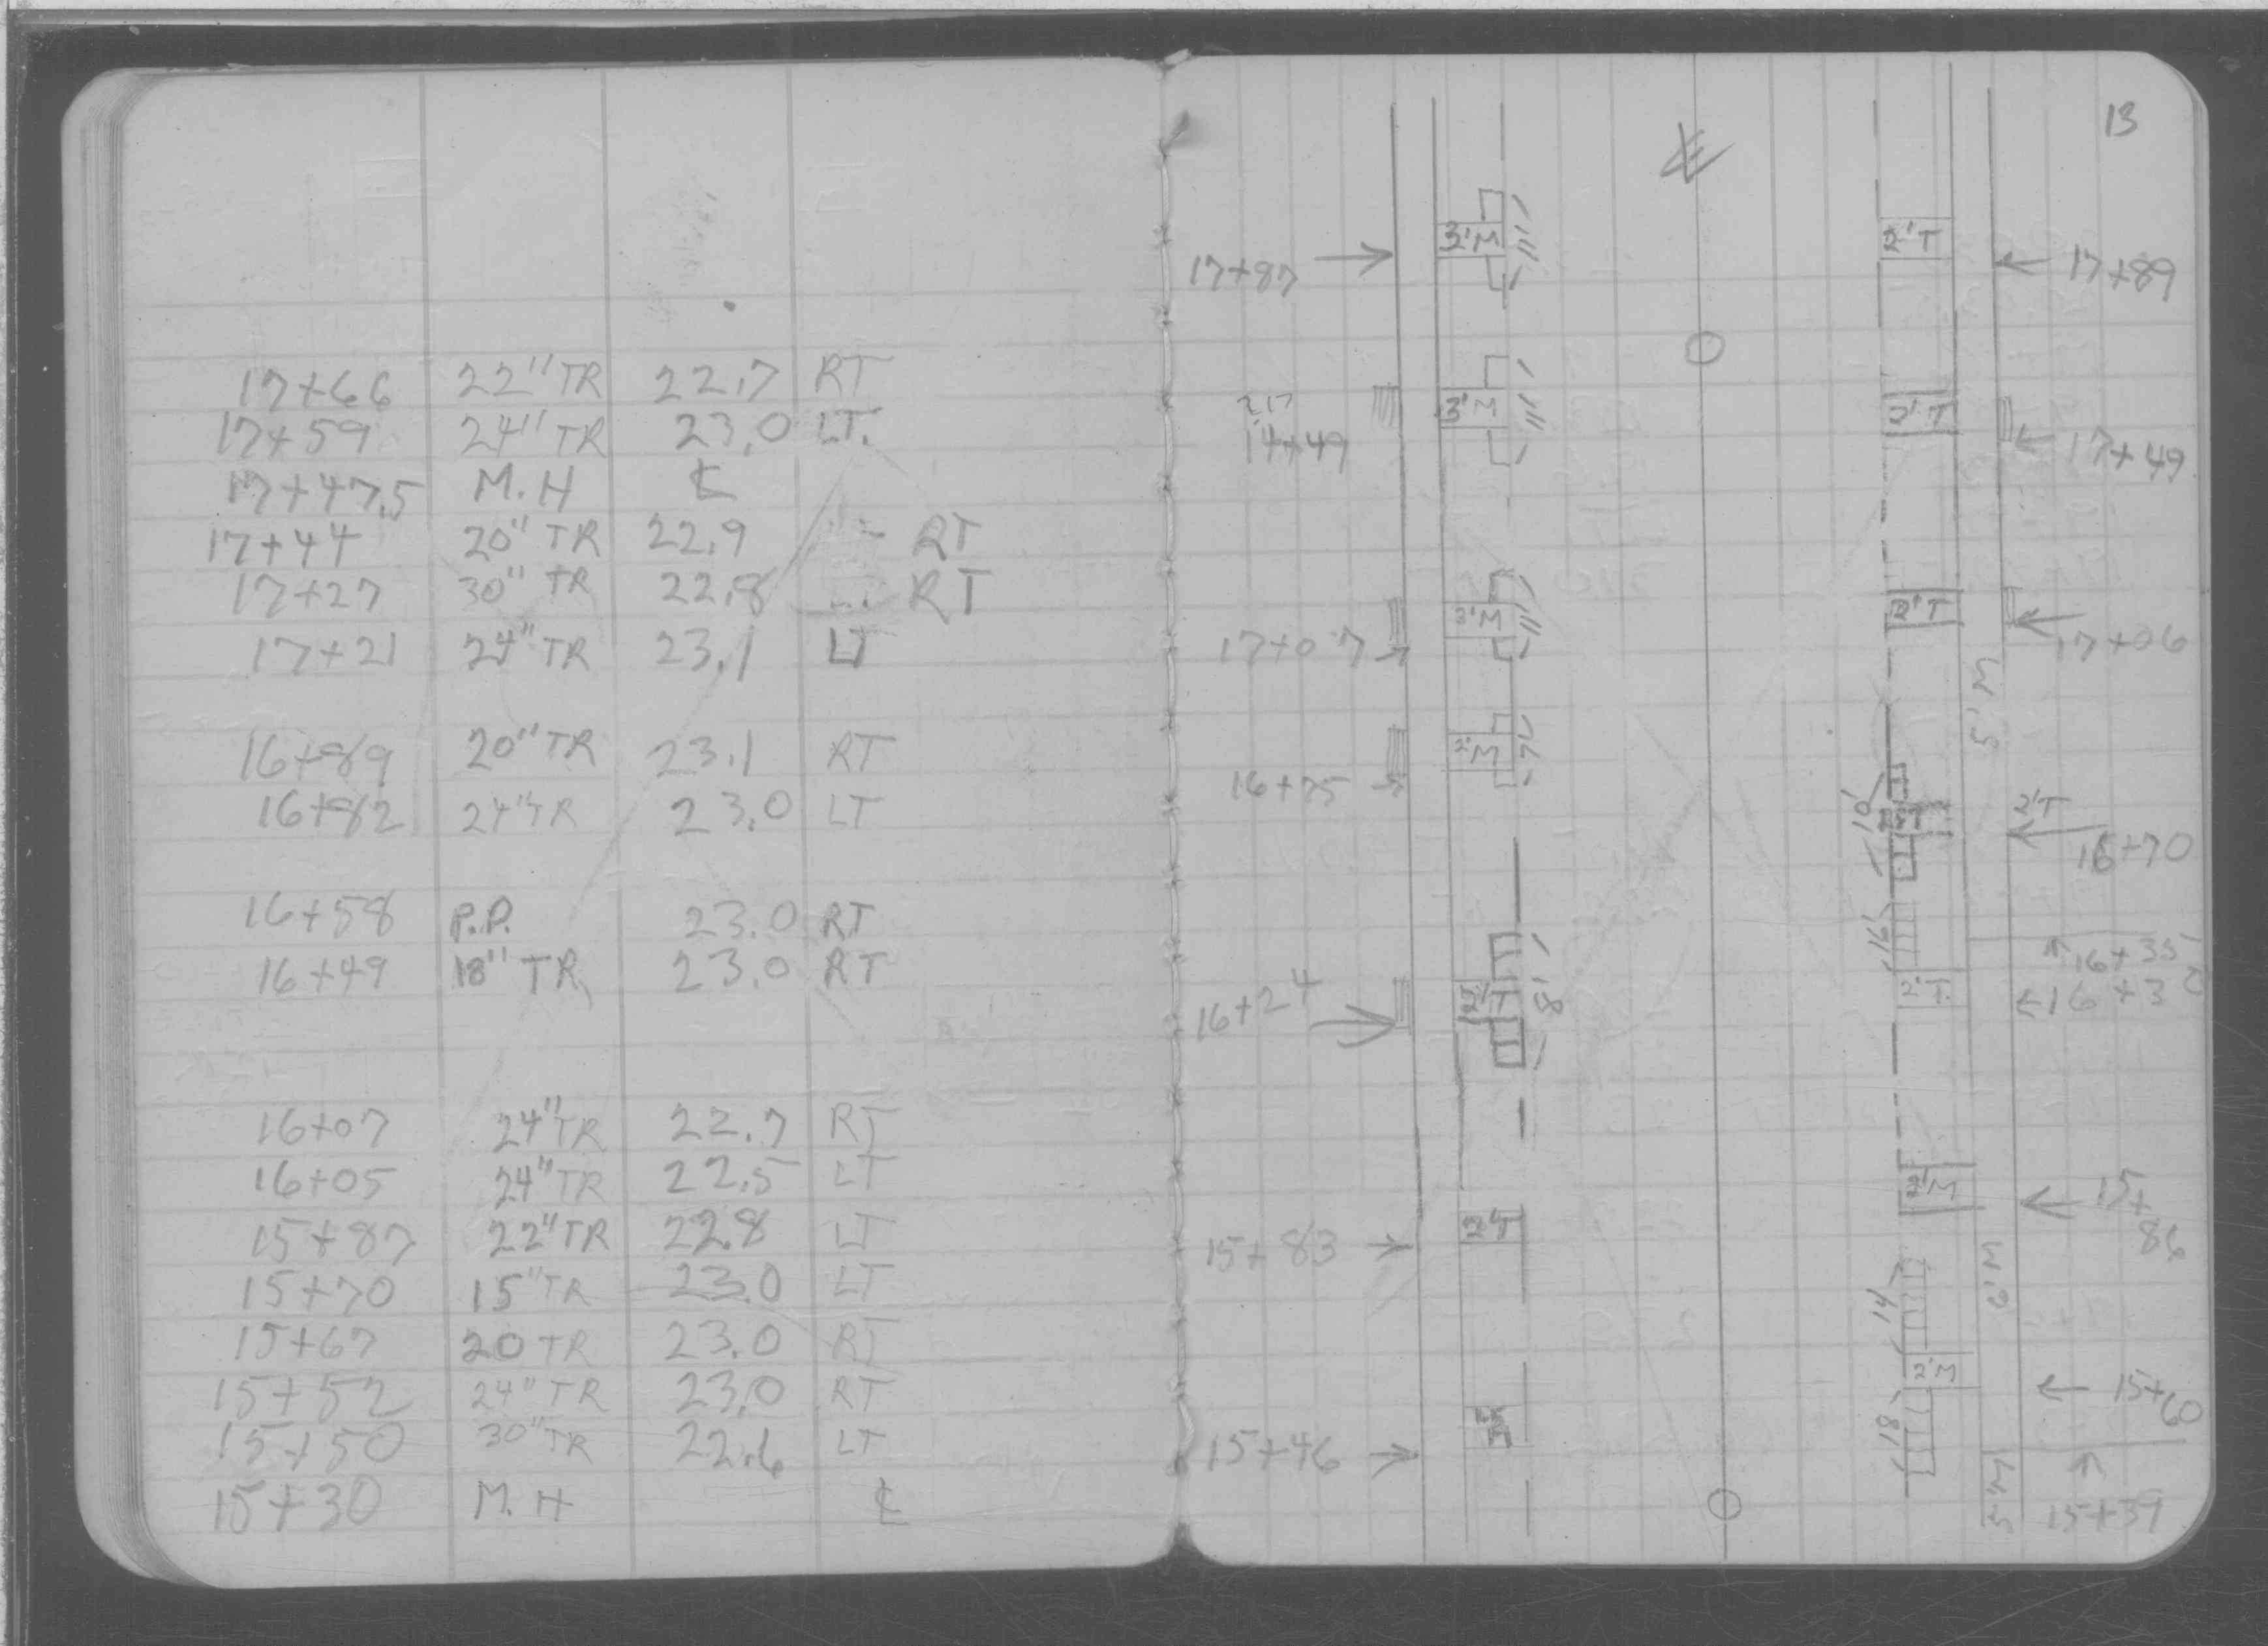 17+66 22" TR 22.7 RT
17+59 24" TR 23.0 LT.
17+47.5 M.H ℄
17+44 20" TR 22.9 RT
17+27 30" TR 22.8 RT
17+21 24" TR 23.1 LT
16+89 20" TR 23.1 RT
16+82 24" TR 23.0 LT
16+58 P.P. 23.0 RT
16+49 18" TR 23.0 RT
16+07 24" TR 22.7 RT
16+05 24" TR 22.5 LT
15+87 22" TR 22.8 LT
15+70 15" TR 23.0 LT
15+67 20 TR 23.0 RT
15+52 24" TR 23.0 RT
15+50 30" TR 22.6 LT
15+30 M.H ℄
13
℄
17+87 3'M 11' 2'T 17+89
14+49 3'M 11' 2'T 17+49
17+07 3'M 11' 2'T 17+06
5'M
16+75 2'M 7'
10' 2'T 2'T
16+70
16'
16+35
16+24 2'T 8' 2'T 16+32
2'M 15+86
15+83 2'T
6'M
14'
2'M 15+60
18'
15+46
5'M 15+39